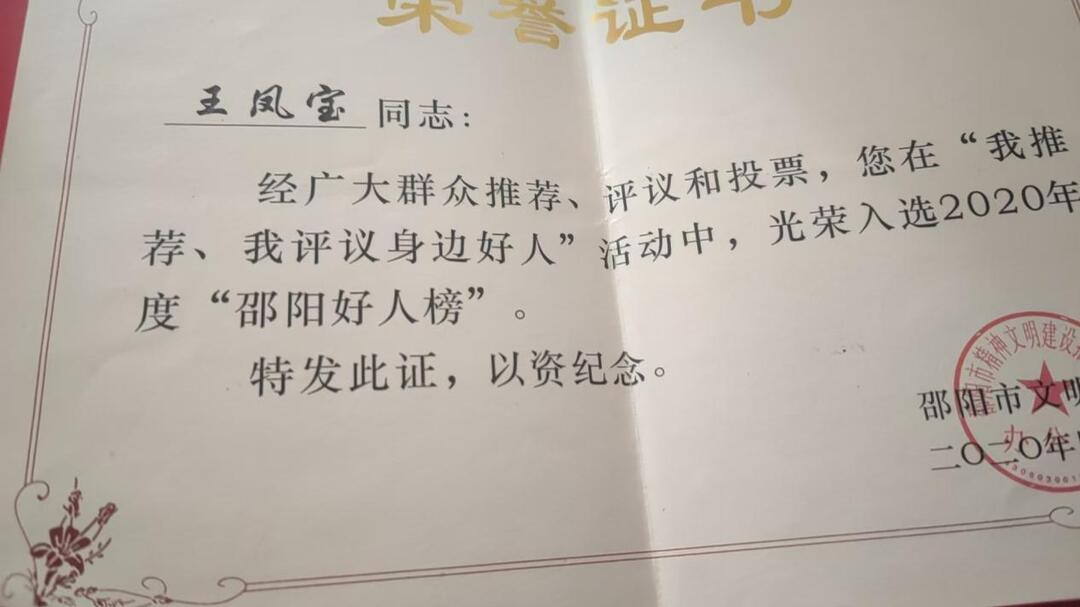 荣誉证书
王凤宝 同志：
经广大群众推荐、评议和投票，您在“我推
荐、我评议身边好人”活动中，光荣入选2020年
度“邵阳好人榜”。
特发此证，以资纪念。
邵阳市精神文明建设
邵阳市文明
办公
二〇二〇年